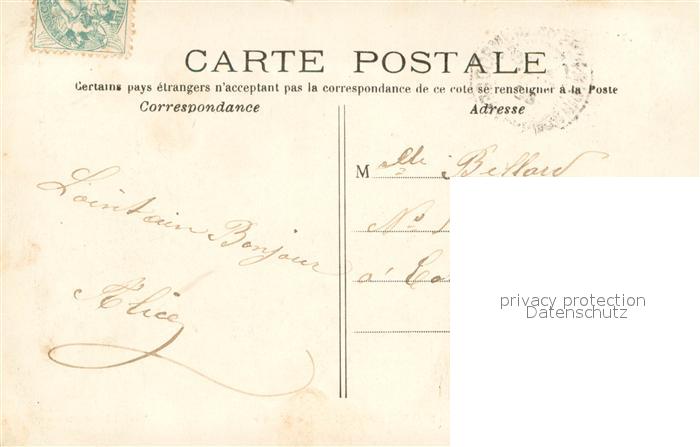 CARTE POSTALE
Certains pays étrangers n'acceptant pas la correspondance de ce coté se renseigner à la Poste
Correspondance
Adresse
Lointain Bonjour
Alice
Mlle Bellard
No
à
privacy protection
Datenschutz